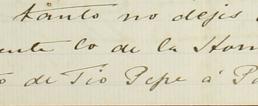 tanto no dejes
ente lo de la Hor
o de Tio Pepe á Pa